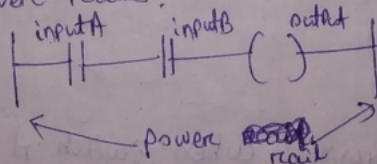 inputA inputB output
power
rail